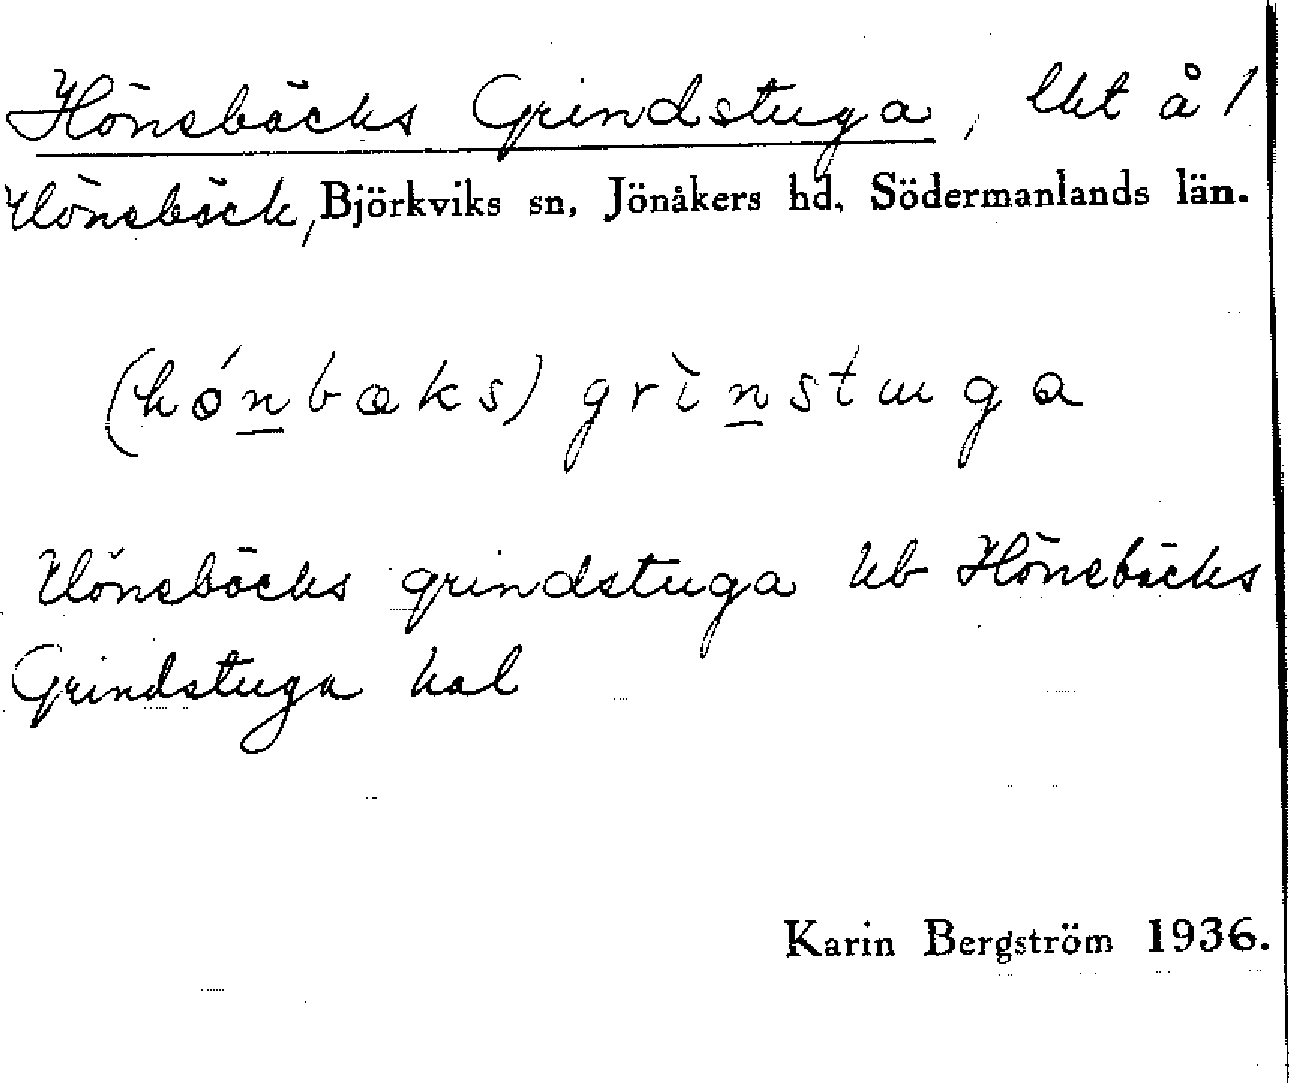 Hönsbäcks Grindstuga, lht å 1
Hönsbäck, Björkviks sn, Jönåkers hd, Södermanlands län.
(hǿn̲bæks) grìn̲stɯga
Hönsbäcks grindstuga hb Hönsbäcks
Grindstuga kal
Karin Bergström 1936.